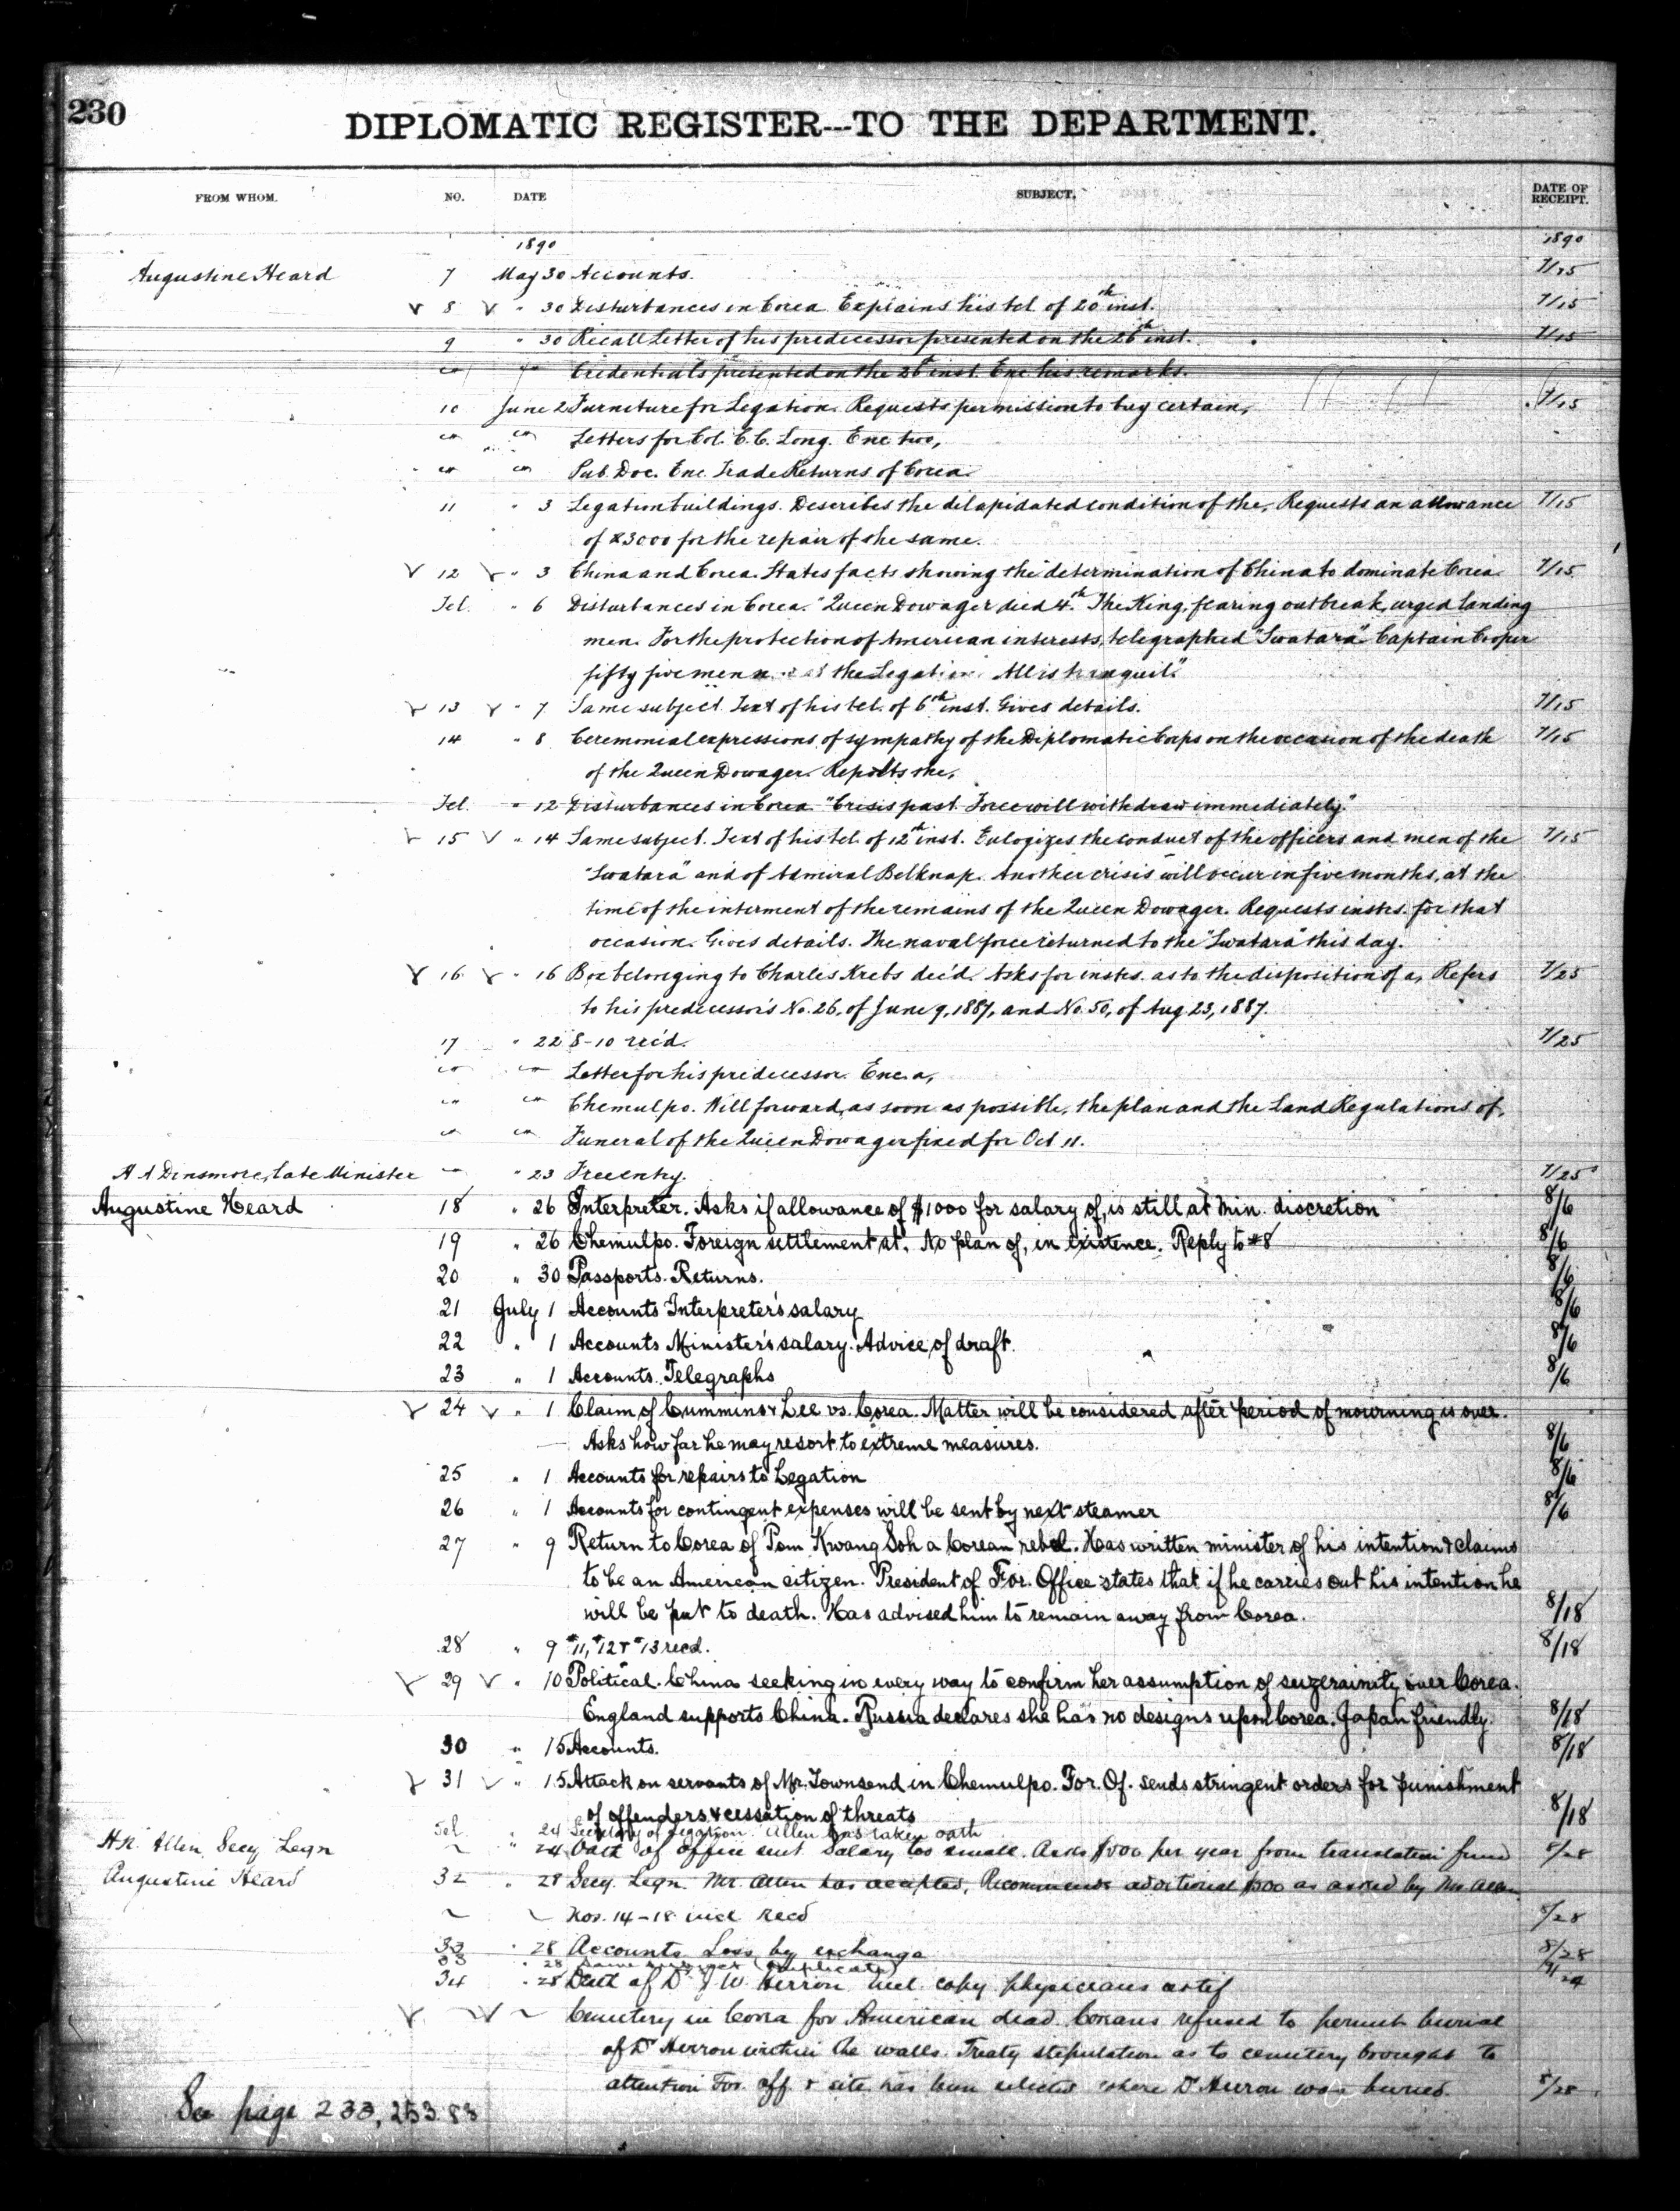 230
DIPLOMATIC REGISTER---TO THE DEPARTMENT.
FROM WHOM. NO. DATE SUBJECT. DATE OF RECEIPT.
1890 1890
Augustine Heard 7 May 30 Accounts. 7/15
8 " 30 Disturbances in Corea. Explains his tel. of 20th inst. 7/15
9 " 30 Recall Letter of his predecessor presented on the 26th inst. 7/15
Credentials presented on the 26th inst. Enc. his remarks.
10 June 2 Furniture for Legation. Requests permission to buy certain, 7/15
Letters for Col. C. C. Long. Enc. two,
Pub. Doc. Enc. Trade Returns of Corea.
11 " 3 Legation buildings. Describes the dilapidated condition of the, Requests an allowance 7/15
of $3000 for the repair of the same.
12 " 3 China and Corea. States facts showing the determination of China to dominate Corea. 7/15
Tel. " 6 Disturbances in Corea. "Queen Dowager died 4th. The King, fearing outbreak, urged landing
men. For the protection of American interests, telegraphed "Swatara" Captain Cooper
fifty five men at the Legation. All is tranquil."
13 " 7 Same subject. Text of his tel. of 6th inst. Gives details. 7/15
14 " 8 Ceremonial expressions of sympathy of the Diplomatic Corps on the occasion of the death 7/15
of the Queen Dowager. Reports the,
Tel. " 12 Disturbances in Corea. "Crisis past. Force will withdraw immediately."
15 " 14 Same subject. Text of his tel. of 12th inst. Eulogizes the conduct of the officers and men of the 7/15
"Swatara" and of Admiral Belknap. Another crisis will occur in five months, at the
time of the interment of the remains of the Queen Dowager. Requests instrs. for that
occasion. Gives details. The naval force returned to the "Swatara" this day.
16 " 16 Box belonging to Charles Krebs dec'd. Asks for instrs. as to the disposition of a, Refers 7/25
to his predecessor's No. 26, of June 9, 1887, and No. 50, of Aug 23, 1887.
17 " 22 8-10 rec'd. 7/25
Letter for his predecessor. Enc. a,
Chemulpo. Will forward, as soon as possible, the plan and the Land Regulations of,
Funeral of the Queen Dowager fixed for Oct 11.
H A Dinsmore, late Minister " 23 Free entry. 7/25
Augustine Heard 18 " 26 Interpreter. Asks if allowance of $1000 for salary of, is still at Min. discretion 8/6
19 " 26 Chemulpo. Foreign settlement at. No plan of, in existence. Reply to #8 8/6
20 " 30 Passports. Returns. 8/6
21 July 1 Accounts Interpreter's salary 8/6
22 " 1 Accounts Minister's salary. Advice of draft. 8/6
23 " 1 Accounts. Telegraphs 8/6
24 " 1 Claim of Cummins & Lee vs. Corea. Matter will be considered after period of mourning is over.
Asks how far he may resort to extreme measures. 8/6
25 " 1 Accounts for repairs to Legation 8/6
26 " 1 Accounts for contingent expenses will be sent by next steamer 8/6
27 " 9 Return to Corea of Pom Kwang Soh a Corean rebel. Has written minister of his intention & claims
to be an American citizen. President of For. Office states that if he carries out his intention he
will be put to death. Has advised him to remain away from Corea. 8/18
28 " 9 #11, #12 & #13 recd. 8/18
29 " 10 Political. China seeking in every way to confirm her assumption of suzerainity over Corea.
England supports China. Russia declares she has no designs upon Corea. Japan friendly. 8/18
30 " 15 Accounts. 8/18
31 " 15 Attack on servants of Mr. Townsend in Chemulpo. For. Of. sends stringent orders for punishment
of offenders & cessation of threats 8/18
Tel. " 24 Secretary of Legation. Allen has taken oath
H.N. Allen, Secy Legn " 24 Oath of office sent Salary too small. Asks $500 per year from translation fund 8/28
Augustine Heard 32 " 28 Secy. Legn. Mr. Allen has accepted, Recommends additional $500 as asked by Mr. Allen
Nos. 14-18 incl recd 8/28
33 " 28 Accounts Loss by exchange 8/28
33 " 28 Same subject (Duplicate)
34 " 28 Death of Dr J W Herron incl. copy physicians certif
Cemetery in Corea for American dead. Coreans refused to permit burial
of Dr Herron within the walls. Treaty stipulation as to cemetery brought to
attention For. Off. & site has been selected where Dr Herron was buried. 8/28
See page 233, 253.83